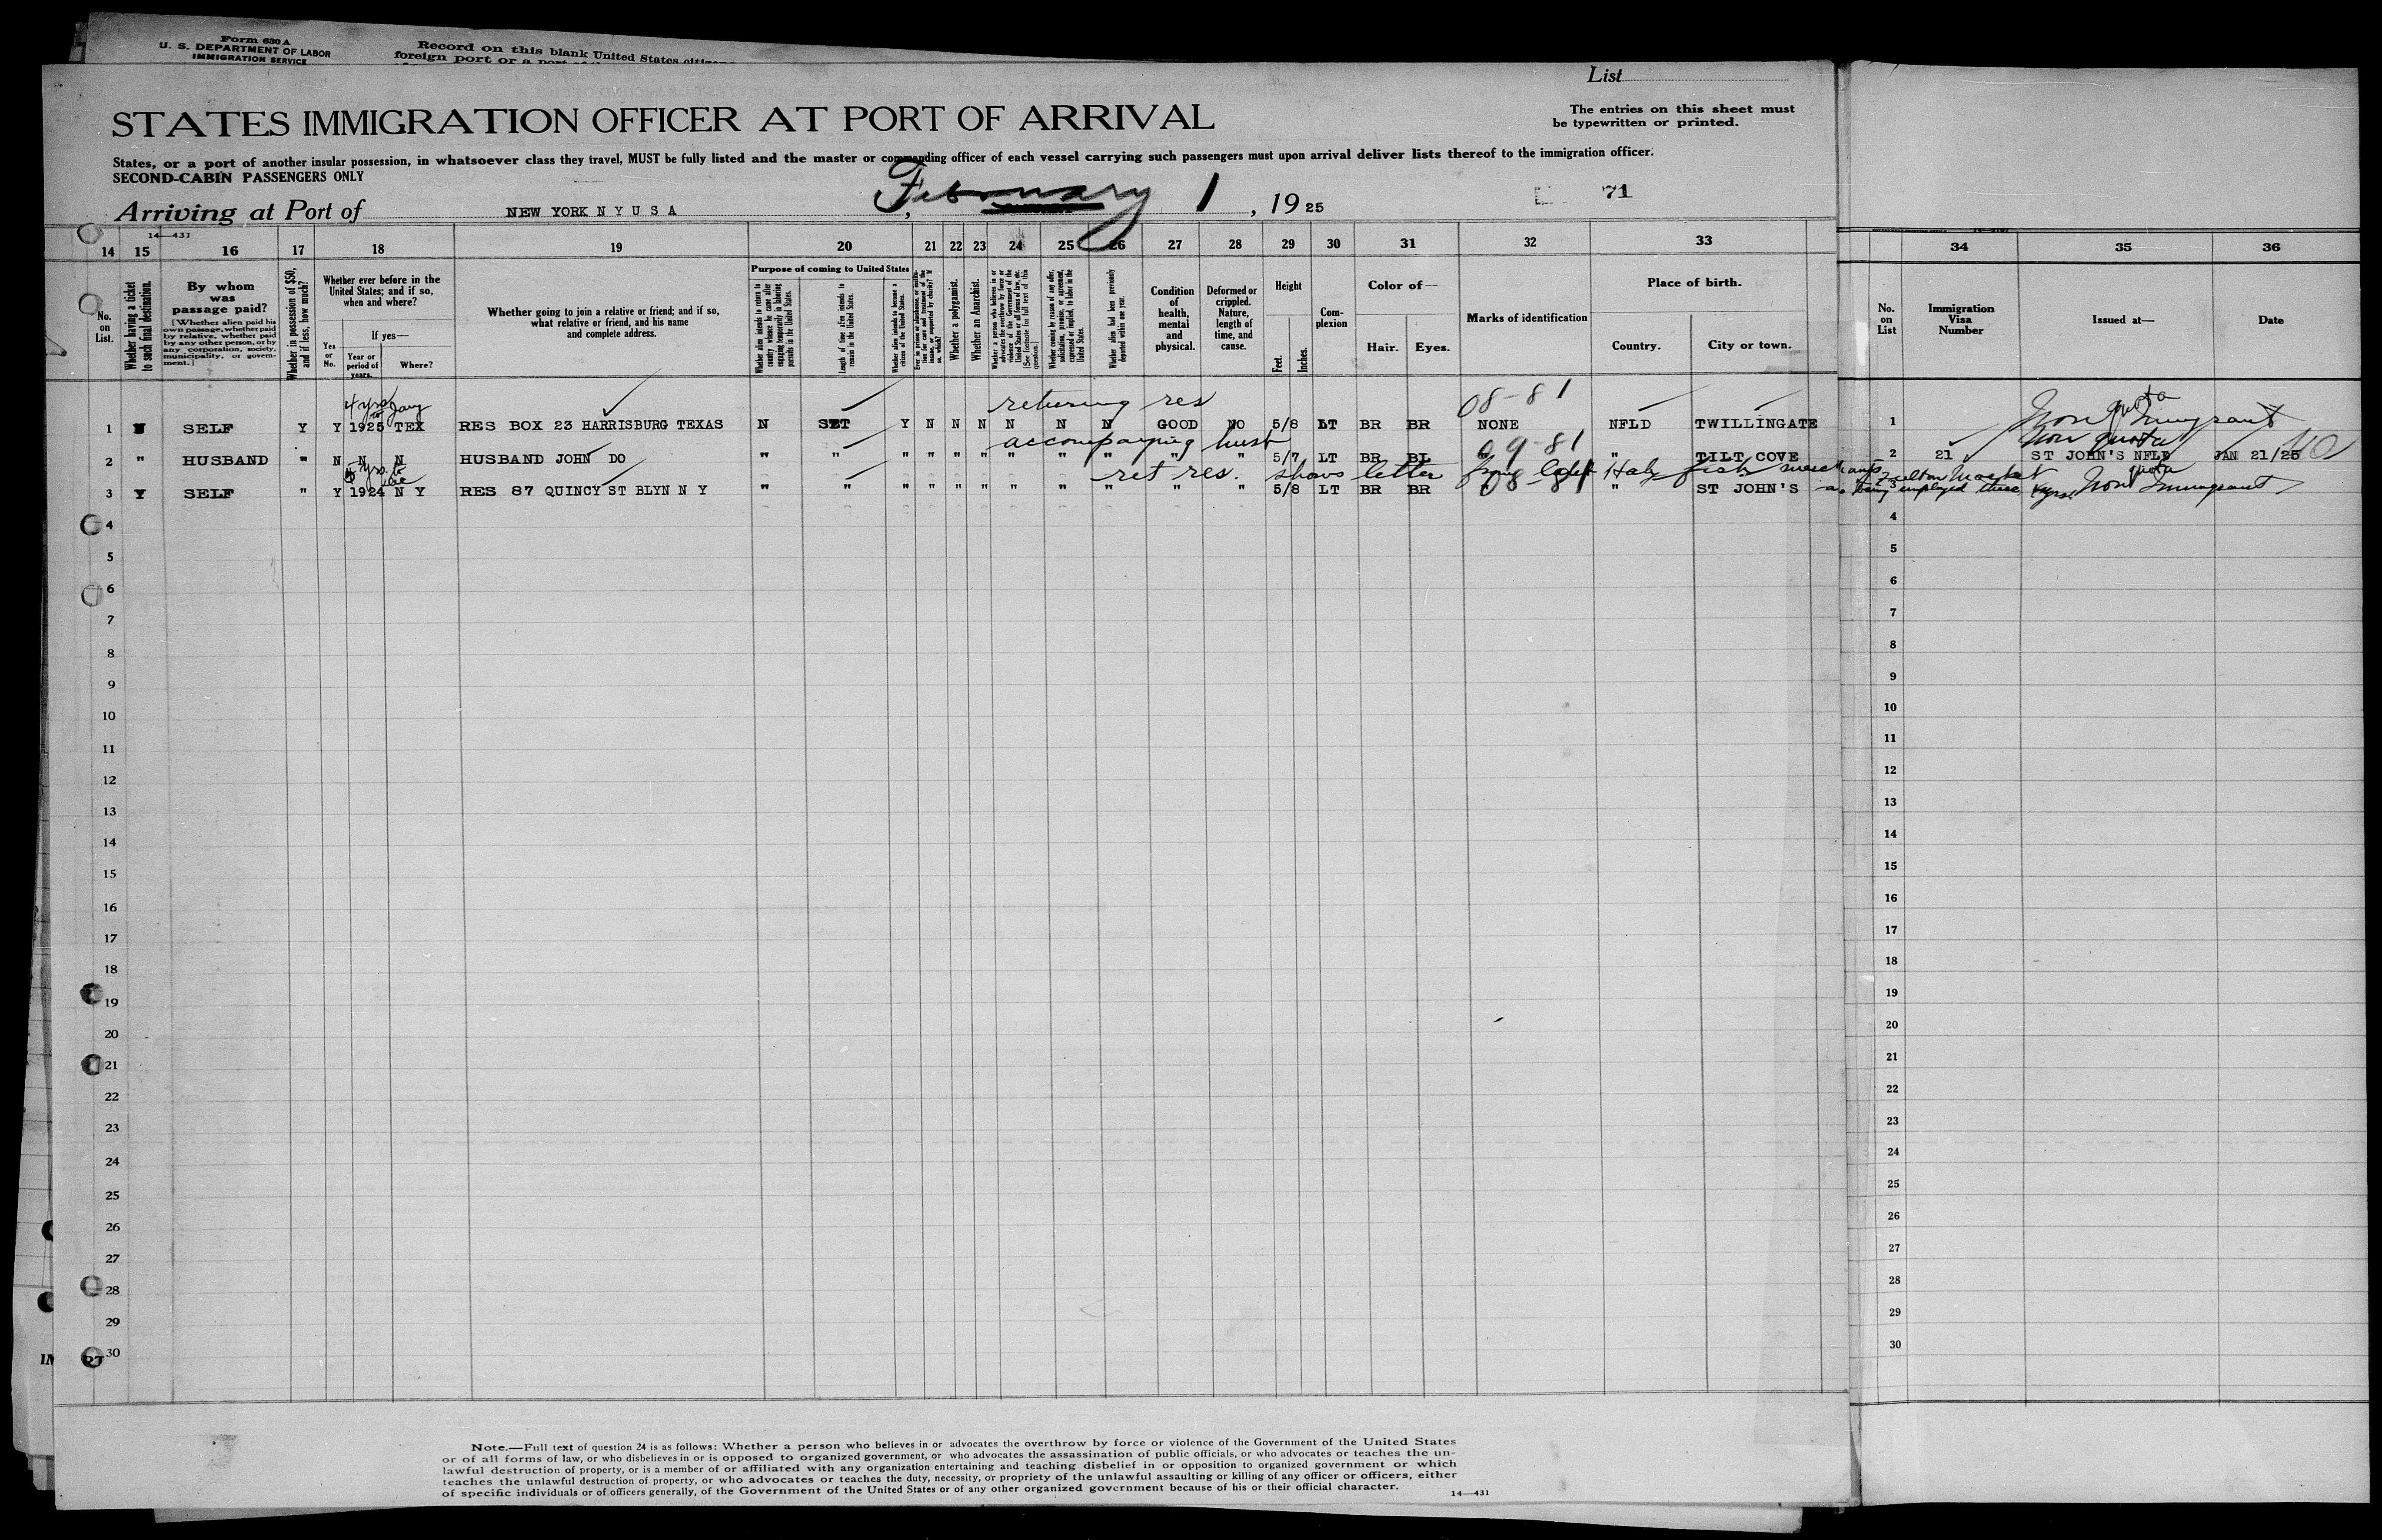 Form 630 A
U. S. DEPARTMENT OF LABOR
IMMIGRATION SERVICE
Record on this blank United States
foreign port or a port
List
STATES IMMIGRATION OFFICER AT PORT OF ARRIVAL
The entries on this sheet must
be typewritten or printed.
States, or a port of another insular possession, in whatsoever class they travel, MUST be fully listed and the master or commanding officer of each vessel carrying such passengers must upon arrival deliver lists thereof to the immigration officer.
SECOND-CABIN PASSENGERS ONLY
Arriving at Port of NEW YORK N Y U S A, February 1, 1925
71
14—431
14 15 16 17 18 19 20 21 22 23 24 25 26 27 28 29 30 31 32 33 34 35 36
No. on List.
Whether having a ticket to such final destination.
By whom was passage paid?
[Whether alien paid his own passage, whether paid by relative, whether paid by any other person, or by any corporation, society, municipality, or government.]
Whether in possession of $50, and if less, how much?
Whether ever before in the United States; and if so, when and where?
Yes or No.
If yes—
Year or period of years.
Where?
Whether going to join a relative or friend; and if so, what relative or friend, and his name and complete address.
Purpose of coming to United States
Whether alien intends to return to country whence he came after engaging temporarily in laboring pursuits in the United States.
Length of time alien intends to remain in the United States.
Whether alien intends to become a citizen of the United States.
Whether a polygamist.
Whether an Anarchist.
Whether coming by reason of any offer, solicitation, promise, or agreement, expressed or implied, to labor in the United States.
Whether alien had been previously deported within one year.
Condition of health, mental and physical.
Deformed or crippled. Nature, length of time, and cause.
Height
Feet. Inches.
Complexion
Color of—
Hair. Eyes.
Marks of identification
Place of birth.
Country. City or town.
No. on List
Immigration Visa Number
Issued at—
Date
4 yrs to Jany
returning res
08-81
Non quota Immigrant
1 SELF Y Y 1925 TEX RES BOX 23 HARRISBURG TEXAS N SET Y N N N N N N GOOD NO 5/8 LT BR BR NONE NFLD TWILLINGATE 1
accompanying husb
09-81
Non quota
2 " HUSBAND " N N N HUSBAND JOHN DO " " " " " " " " " " " 5/7 LT BR BL " TILT COVE 2 21 ST JOHN'S NFLD JAN 21/25
5 yrs to
ret res. shows letter from
fish merchants
Fulton Market
3 Y SELF " Y 1924 N Y RES 87 QUINCY ST BLYN N Y " " " " " " " " " " " 5/8 LT BR BR 08-81 " ST JOHN'S 3
as being employed there
Non quota Immigrant
4 4
5 5
6 6
7 7
8 8
9 9
10 10
11 11
12 12
13 13
14 14
15 15
16 16
17 17
18 18
19 19
20 20
21 21
22 22
23 23
24 24
25 25
26 26
27 27
28 28
29 29
30 30
Note.—Full text of question 24 is as follows: Whether a person who believes in or advocates the overthrow by force or violence of the Government of the United States
or of all forms of law, or who disbelieves in or is opposed to organized government, or who advocates the assassination of public officials, or who advocates or teaches the un-
lawful destruction of property, or is a member of or affiliated with any organization entertaining and teaching disbelief in or opposition to organized government or which
teaches the unlawful destruction of property, or who advocates or teaches the duty, necessity, or propriety of the unlawful assaulting or killing of any officer or officers, either
of specific individuals or of officers generally, of the Government of the United States or of any other organized government because of his or their official character.
14—431